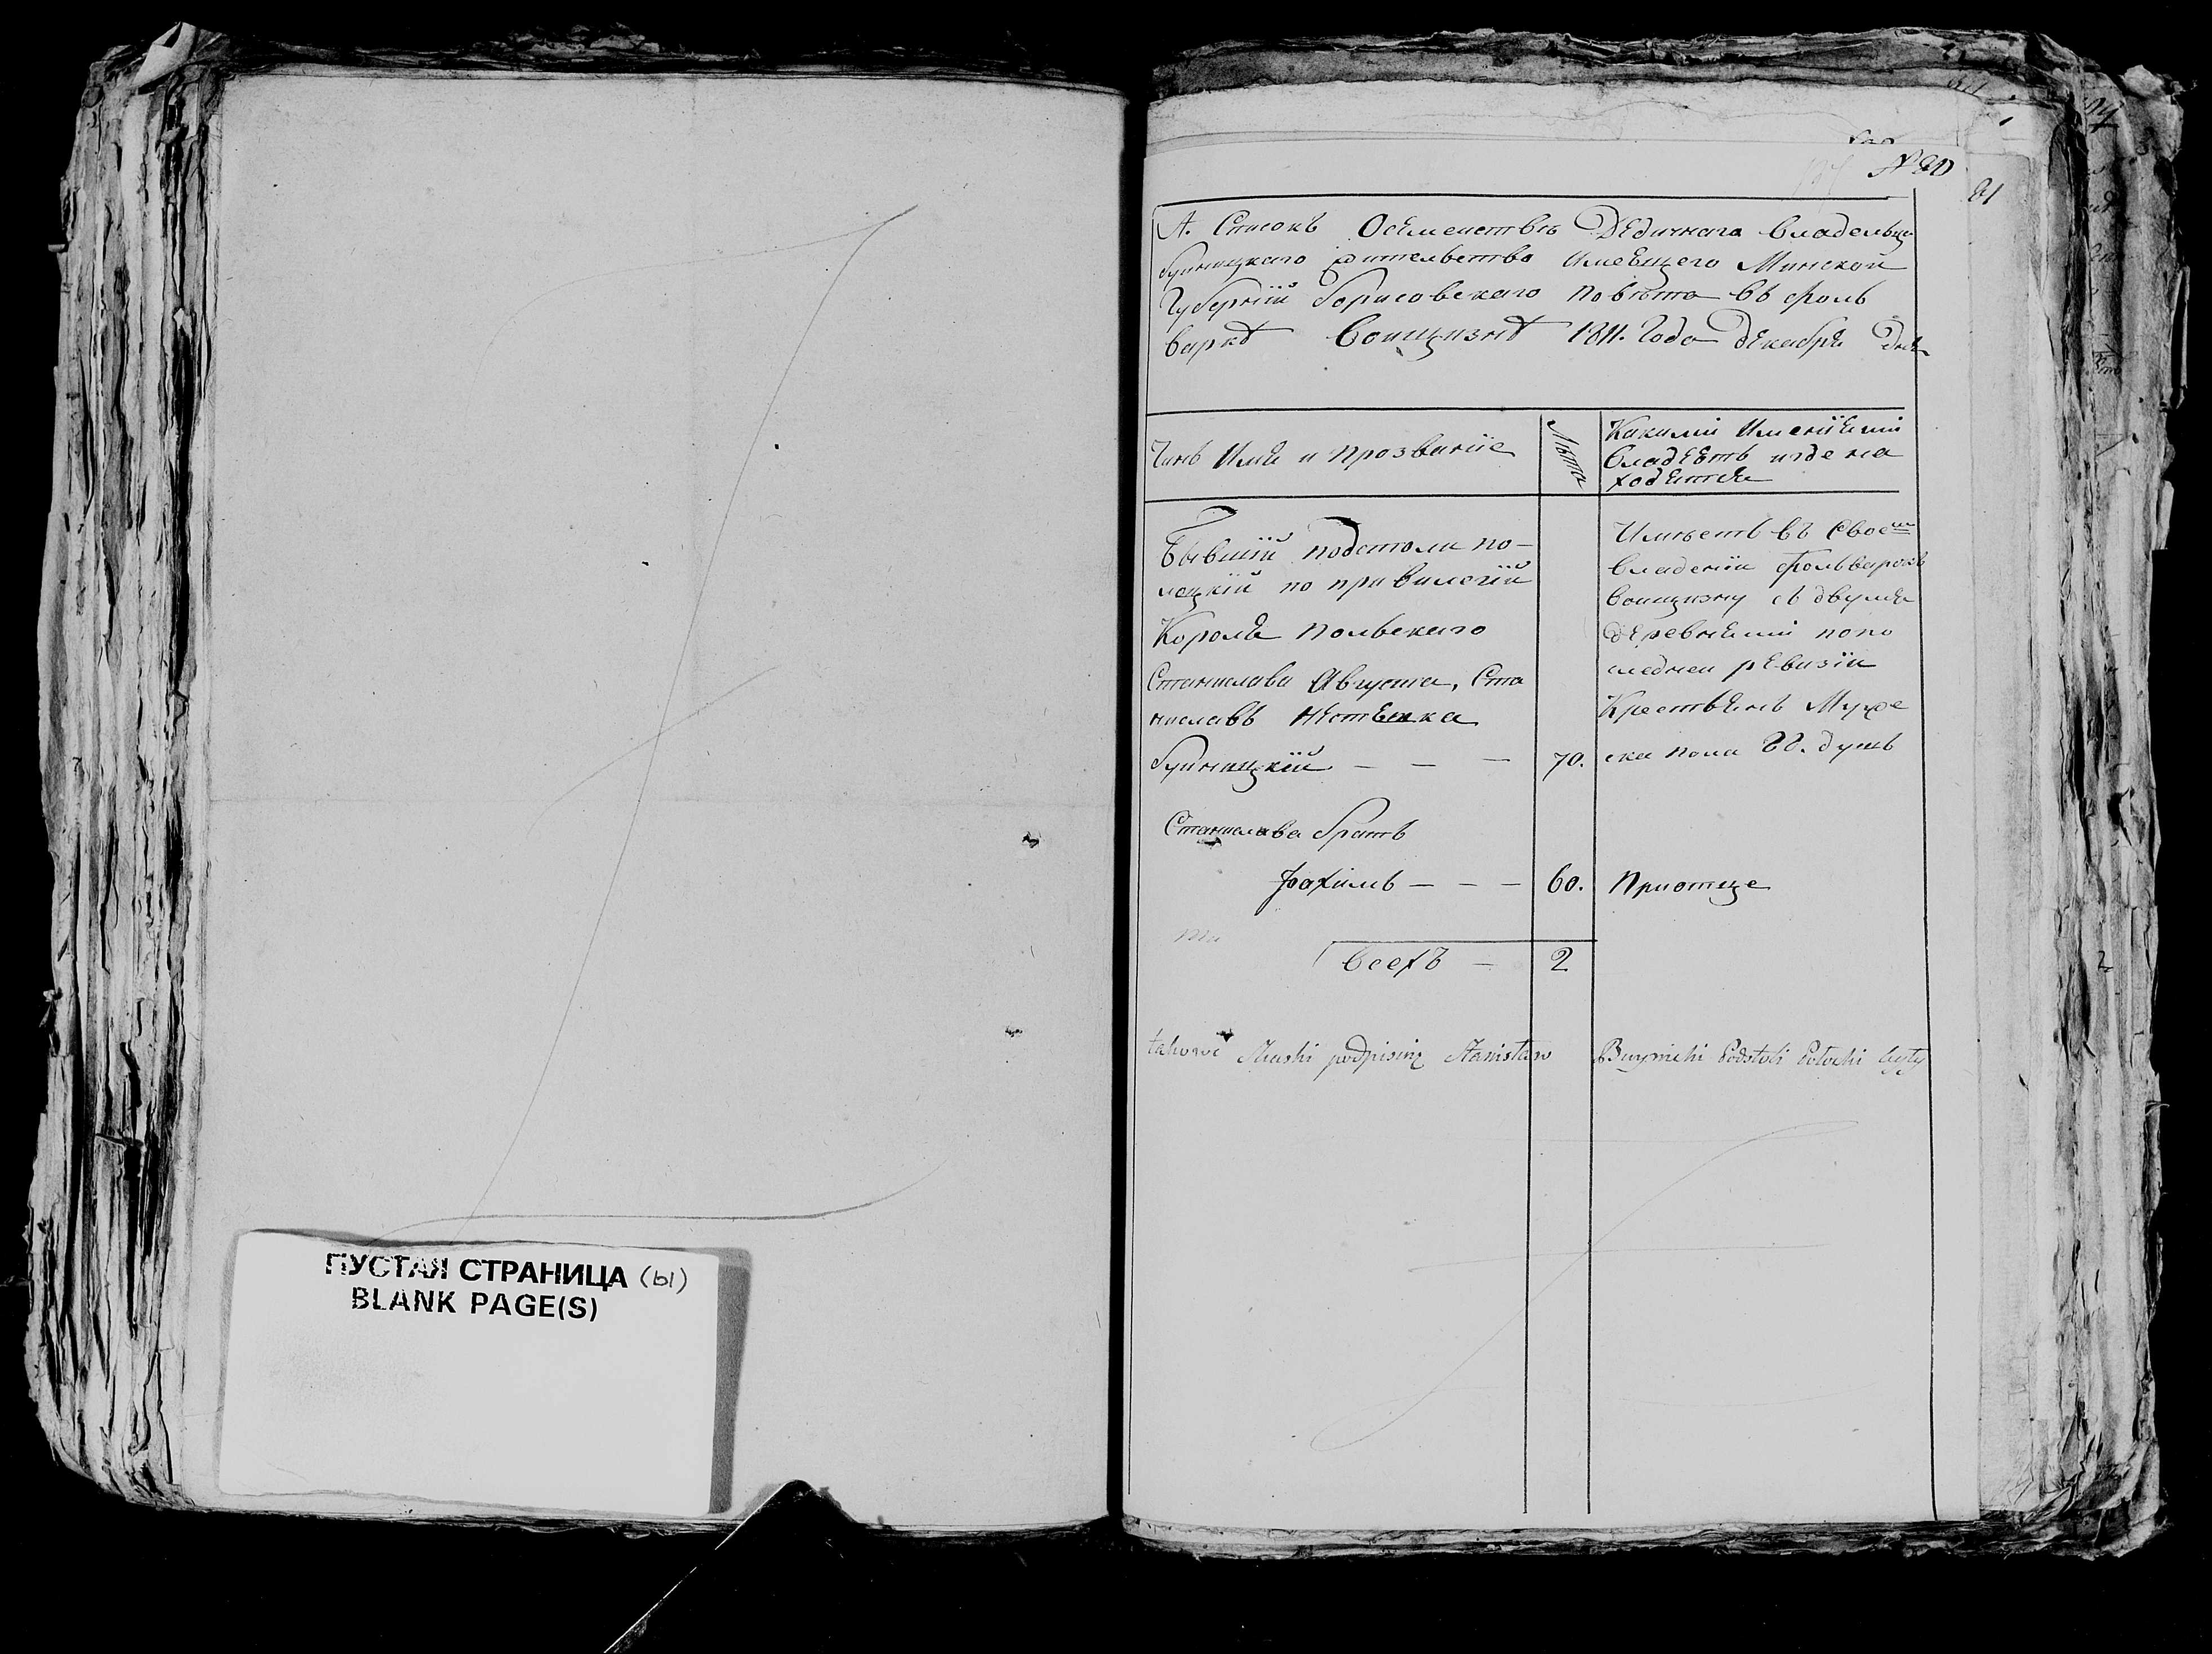 ПУСТАЯ СТРАНИЦА (ы)
BLANK PAGE(S)
№ 80
81
А. Списокъ Осемействѣ Дедичнаго Владельца
Буйницкаго жительство имеющего Минской
Губерніи Борисовскаго повѣта въ фоль
варкѣ 1811. Года декабря Дня
Чинъ Имя и прозваніе
Лѣта
Какими Именіями
владѣетъ игде на
ходятся
Бывшій подстоли по-
лоцкій по привилегіи
Короля Польскаго
Станислава Августа, Ста
ниславъ
Буйницкій — — — 70.
Имѣетъ въ своем
владеніи фольварокъ
съ двумя
деревнями попо
следней ревизіи
Крестьянъ Муже
ска пола 22. душъ
Станислава братъ
— — — 60. Приотце
всехъ — 2
takowe podpisuię Stanisław Buynicki Podstoli Połocki były